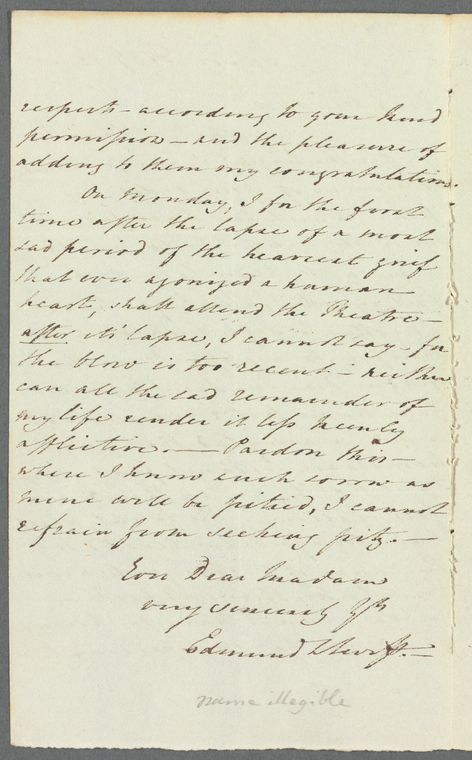 respects - according to your kind
permission - and the pleasure of
adding to them my congratulations.
On Monday, I for the first
time after the lapse of a most
sad period of the heaviest grief
that ever agonized a human
heart, shall attend the Theatre -
after its' lapse, I cannot say - for
the blow is too recent - neither
can all the sad remainder of
my life render it less keenly
afflictive. - Pardon this -
where I know such sorrow as
mine will be pitied, I cannot
refrain from seeking pity. -
Ever Dear Madam
very sincerely Yrs
Edmund
name illegible